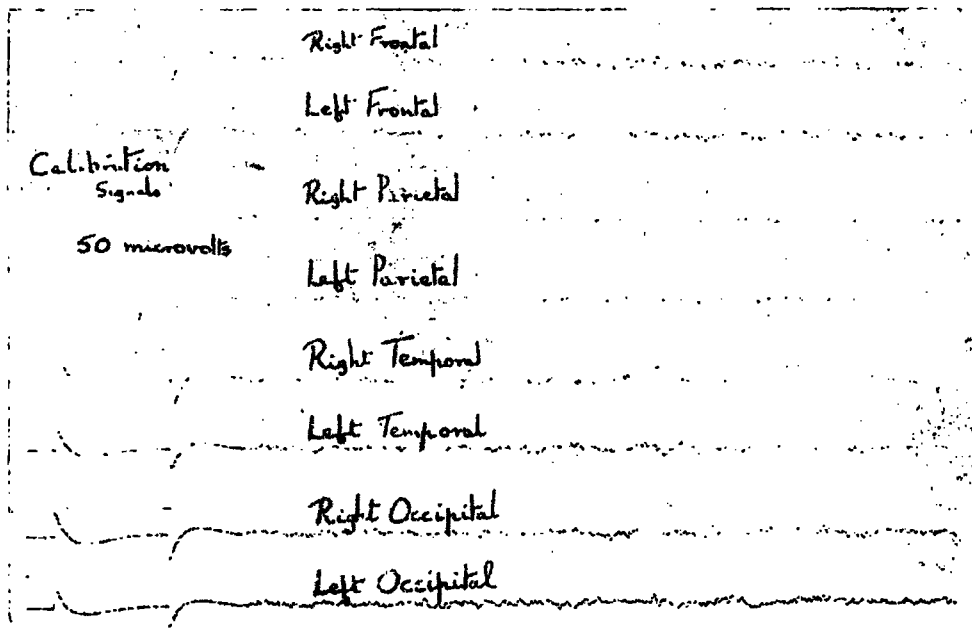 Right Frontal
Left Frontal
Calibration
Signals
Right Parietal
50 microvolts
Left Parietal
Right Temporal
Left Temporal
Right Occipital
Left Occipital